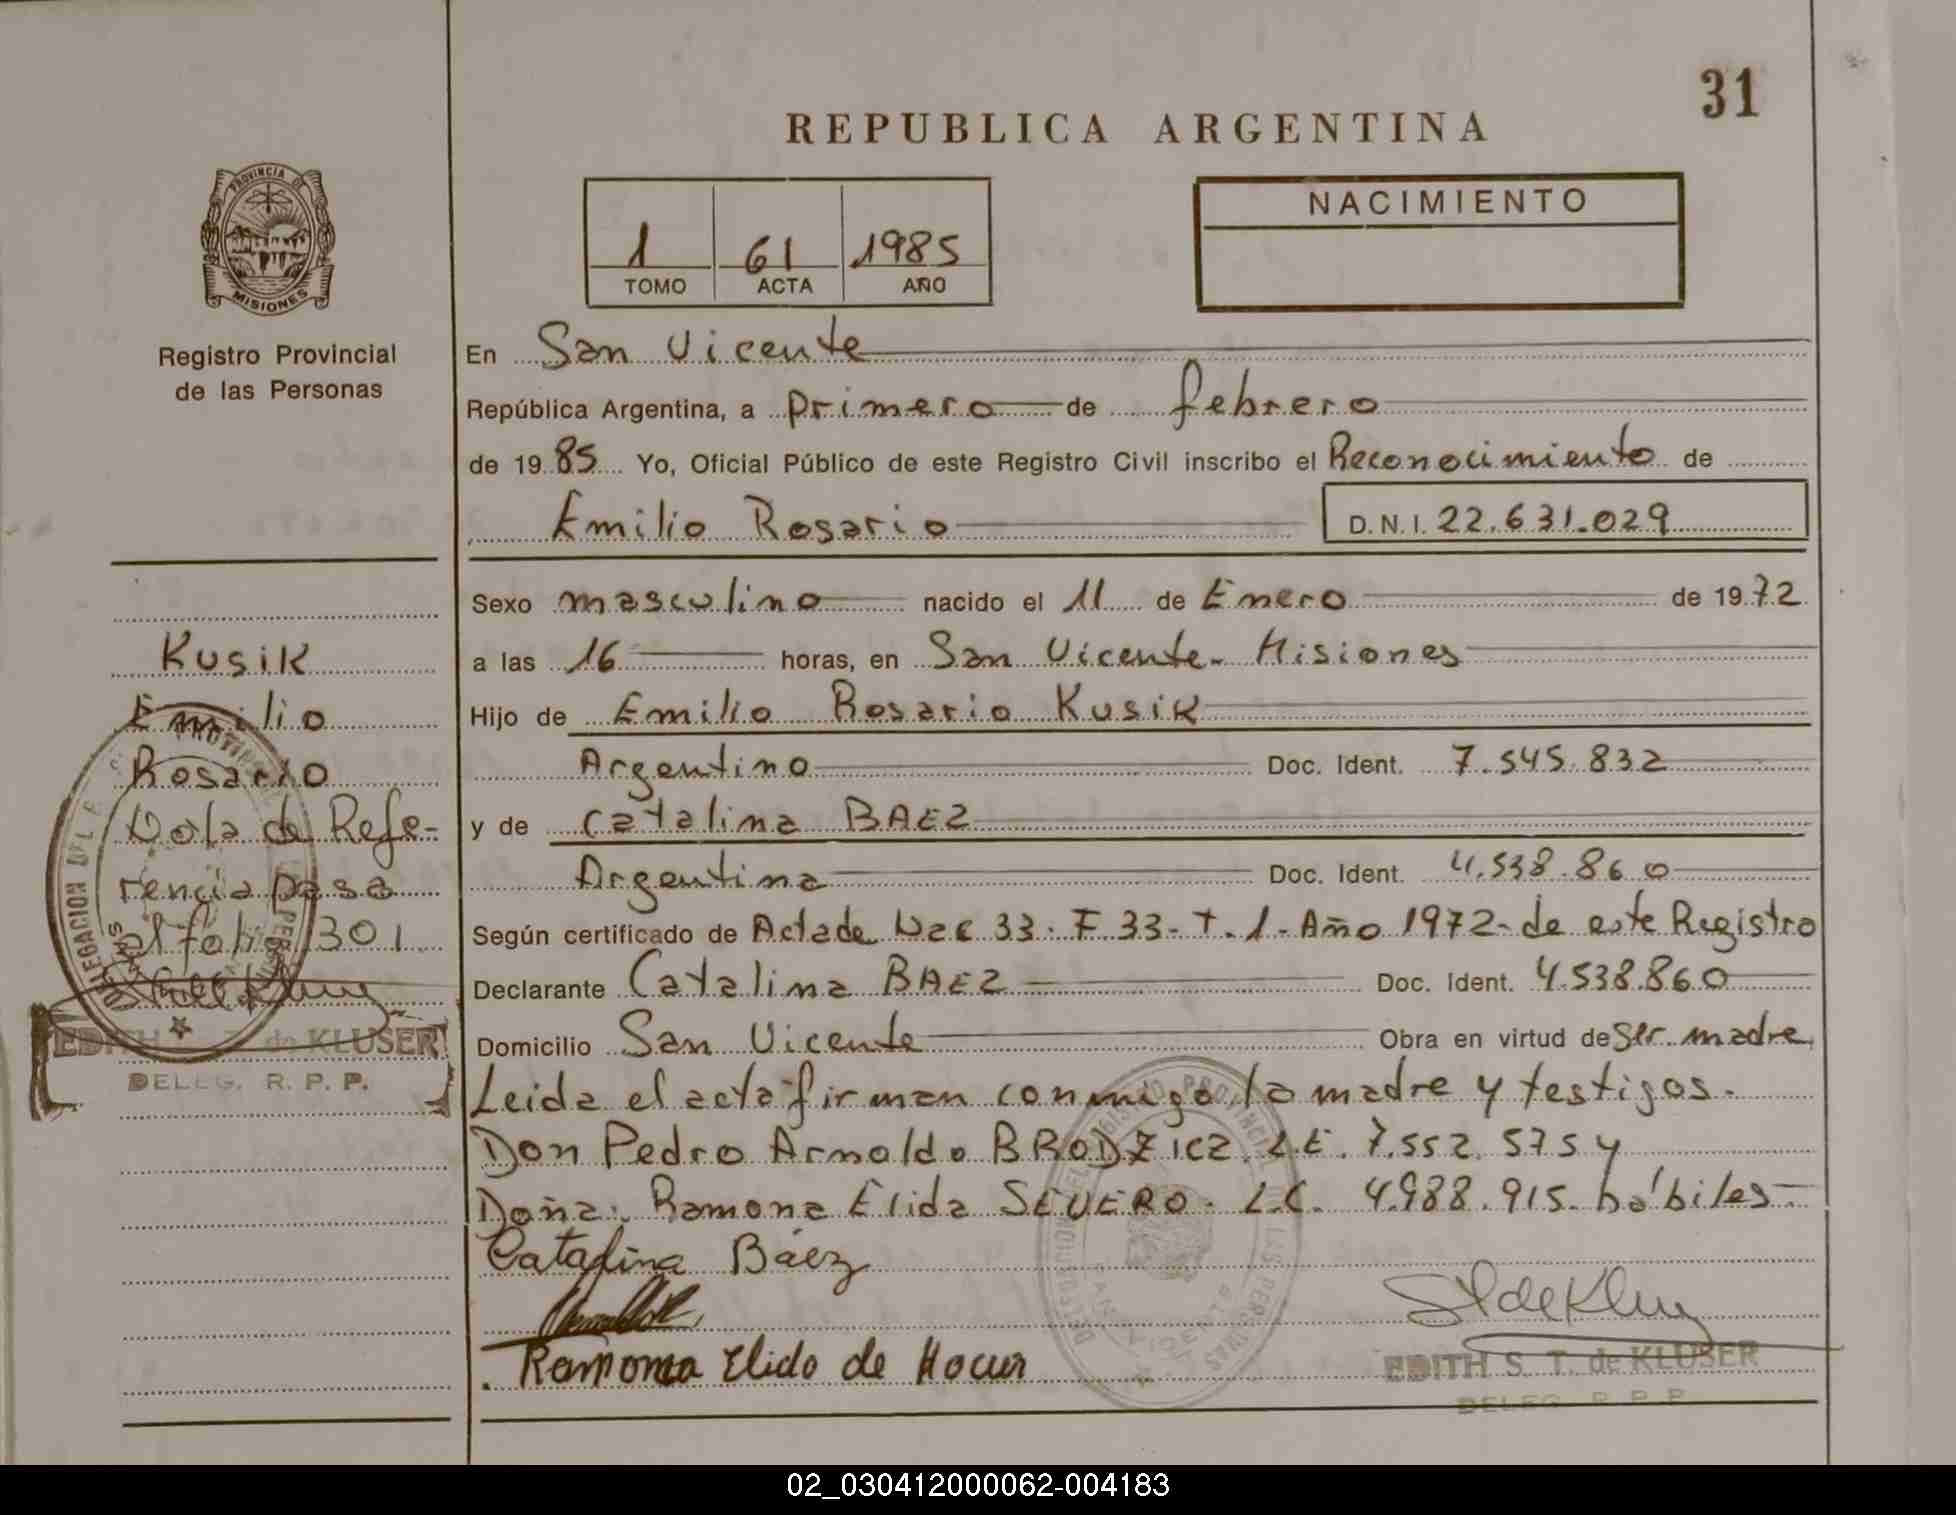 31
REPUBLICA ARGENTINA
PROVINCIA DE
MISIONES
Registro Provincial
de las Personas
1 61 1985
TOMO ACTA AÑO
NACIMIENTO
En San Vicente
República Argentina, a primero de febrero
de 1985 Yo, Oficial Público de este Registro Civil inscribo el Reconocimiento de
Emilio Rosario D.N.I. 22.631.029
Sexo masculino nacido el 11 de Enero de 1972
a las 16 horas, en San Vicente - Misiones
Hijo de Emilio Rosario Kusik
Argentino Doc. Ident. 7.545.832
y de Catalina BAEZ
Argentina Doc. Ident. 4.538.860
Según certificado de Acta de Nac 33. F 33- T. 1- Año 1972- de este Registro
Declarante Catalina BAEZ Doc. Ident. 4.538.860
Domicilio San Vicente Obra en virtud de ser madre
Leida el acta firman conmigo la madre y testigos.
Don Pedro Arnoldo BRODZICZ. L.E. 7.552.575 y
Doña. Ramona Elida SEVERO. L.C. 4.988.915. hábiles
Catalina Báez
Ramona Elida de
EDITH S. T. de KLUSER
DELEG. R. P. P.
Kusik
Emilio
Rosario
Nota de Refe-
rencia pasa
al folio 301
EDITH S. T. de KLUSER
DELEG. R. P. P.
02_030412000062-004183